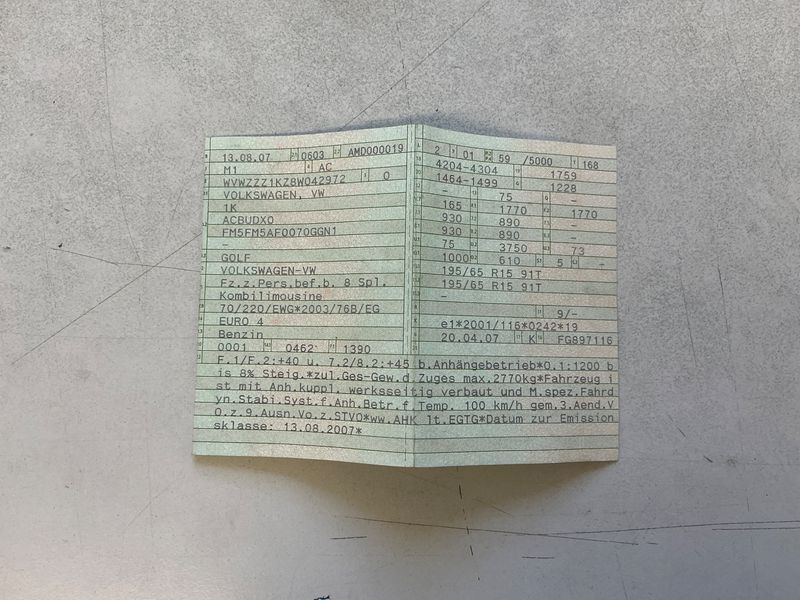 13.08.07 0603 AMD000019
M1 AC
WVWZZZ1KZ8W042972 0
VOLKSWAGEN, VW
1K
ACBUDX0
FM5FM5AF0070GGN1
–
GOLF
VOLKSWAGEN-VW
Fz.z.Pers.bef.b. 8 Spl.
Kombilimousine
70/220/EWG*2003/76B/EG
EURO 4
Benzin
0001 0462 1390
2 01 59 /5000 168
4204-4304 1759
1464-1499 1228
– 75 –
165 1770 1770
930 890 –
930 890 –
75 3750 73
1000 610 5 –
195/65 R15 91T
195/65 R15 91T
–
9/–
e1*2001/116*0242*19
20.04.07 K FG897116
F.1/F.2:+40 u. 7.2/8.2:+45 b.Anhängebetrieb*0.1:1200 b
is 8% Steig.*zul.Ges-Gew.d.Zuges max.2770kg*Fahrzeug i
st mit Anh.kuppl. werksseitig verbaut und M.spez.Fahrd
yn.Stabi.Syst.f.Anh.Betr.f.Temp. 100 km/h gem.3.Aend.V
O.z.9.Ausn.Vo.z.STVO*ww.AHK lt.EGTG*Datum zur Emission
sklasse: 13.08.2007*